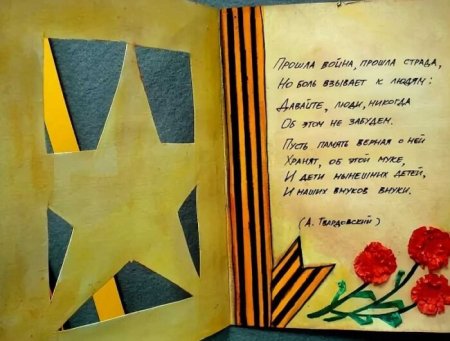 Прошла война, прошла страда,
Но боль взывает к людям:
Давайте, люди, никогда
Об этом не забудем.
Пусть память верная о ней
Хранят, об этой муке,
И дети нынешних детей,
И наших внуков внуки.
(А. Твардовский)